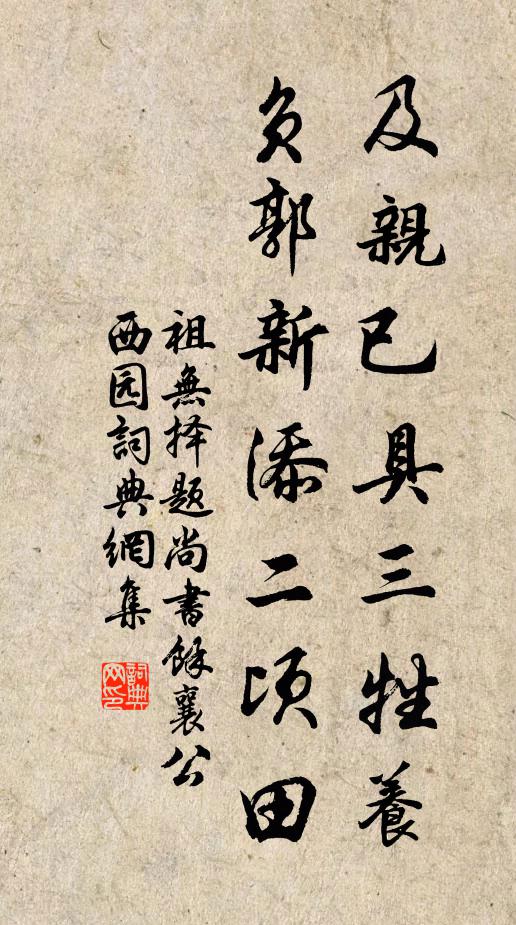 及親已具三牲養
負郭新添二頃田
祖無择題尚書餘襄公
西园詞典網集
詞典网印